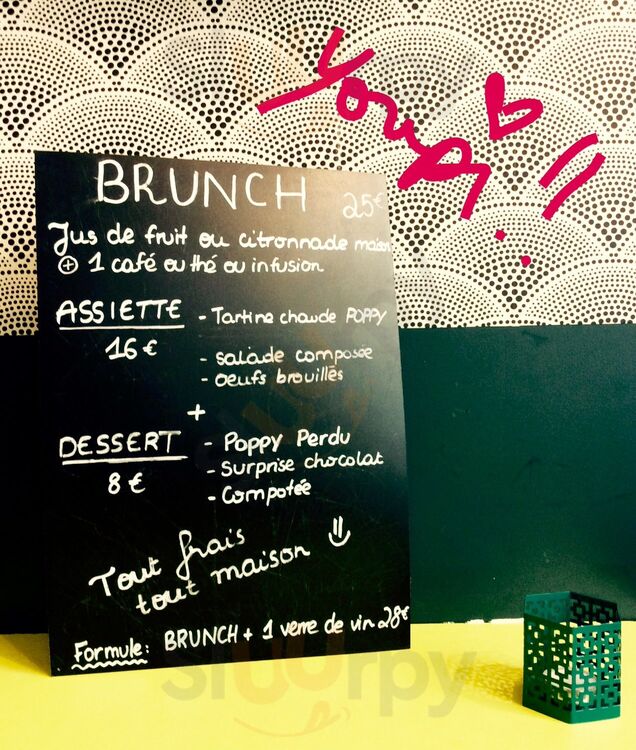 Youpi !!
BRUNCH 25€
Jus de fruit ou citronnade maison
+ 1 café ou thé ou infusion
ASSIETTE - Tartine chaude POPPY
16 €
- salade composée
- oeufs brouillés
+
DESSERT - Poppy Perdu
8 €
- Surprise chocolat
- Compotée
Tout frais
tout maison
Formule: BRUNCH + 1 verre de vin 28€
sluurpy